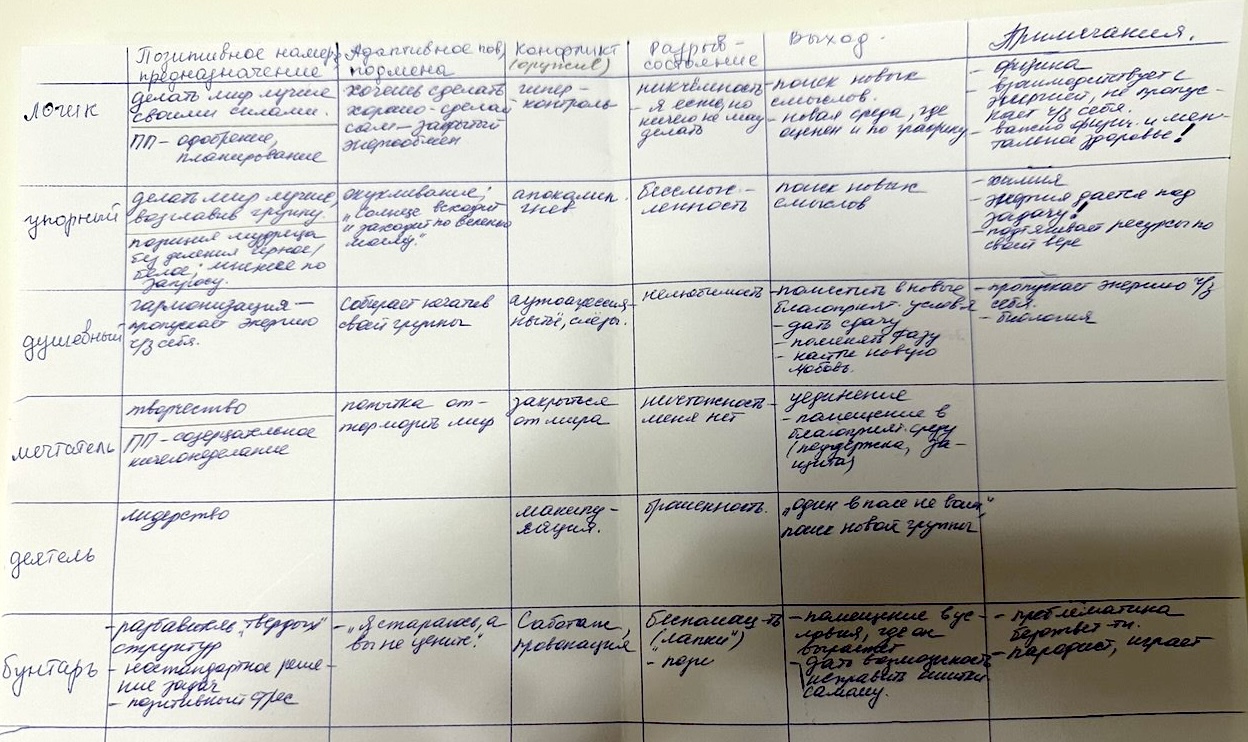 Позитивное намер. предназначение
Адаптивное пов, подмена
Конфликт (оружие)
Разрыв-состояние
Выход.
Примечания.
логик
делать мир лучше
своими силами.
ПП- одобрение,
планирование
хочешь сделать
хорошо - сделай
сам - закрытый
энергообмен
гипер-
-контроль
никчёмность
- Я есть, но
ничего не могу
делать
- поиск новых
смыслов.
- новая среда, где
оценен и по графику
- физика
- взаимодействует с
энергией, но пропус-
кает ч/з себя.
- важно физич. и мен-
тальное здоровье!
упорный
делать мир лучше,
возглавив группу.
позиция мудреца
без деления чёрное/
белое; мнение по
запросу.
окукливание;
"солнце всходит
и заходит по велению
моему."
апокалип.
гнев
бессмыс-
ленность
поиск новых
смыслов
- химия
- энергия дается под
задачу!
- подтягивает ресурсы по
своей вере
душевный
гармонизация -
пропускает энергию
ч/з себя.
собирает
своей группы
аутоагрессия-
нытьё, слёзы.
нелюбимость
- поместить в новые
благоприят. условия
- дать сдачу
- поменять фазу
- найти новую
любовь.
- пропускает энергию ч/з
себя.
- биология
мечтатель
творчество
ПП-созерцательное
ничегонеделание
попытка от-
тормозить мир
закрыться
от мира
ничтожность-
меня нет
- уединение
- помещение в
благоприят. среду
(поддержка, за-
щита)
деятель
лидерство
манипу-
ляция.
брошенность.
"один в поле не воин",
поиск новой группы
бунтарь
- разбавитель "твердых"
структур
- нестандартное реше-
ние задач
- позитивный
- "Я стараюсь, а
вы не цените."
Саботаж,
провокация
беспомощ-ть
("лапки")
- помещение в ус-
ловия, где он
вырастет
- дать возможность
исправить ошибки
самому.
- проблематика
безответ-ти.
- пародист, играет